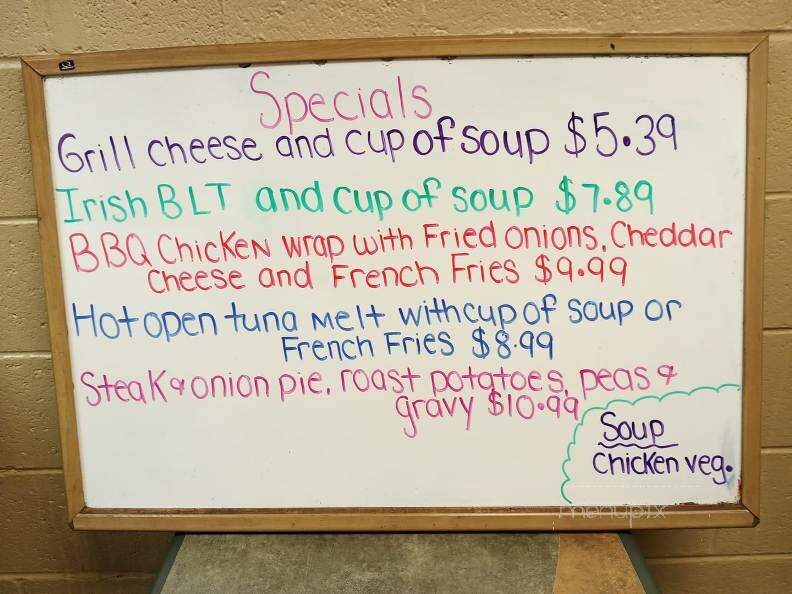 Specials
Grill cheese and cup of soup $5.39
Irish BLT and cup of soup $7.89
BBQ Chicken wrap with Fried onions, Cheddar
Cheese and French Fries $9.99
Hot open tuna melt with cup of soup or
French Fries $8.99
Steak & onion pie, roast potatoes, peas &
gravy $10.99
Soup
Chicken veg.
menupix